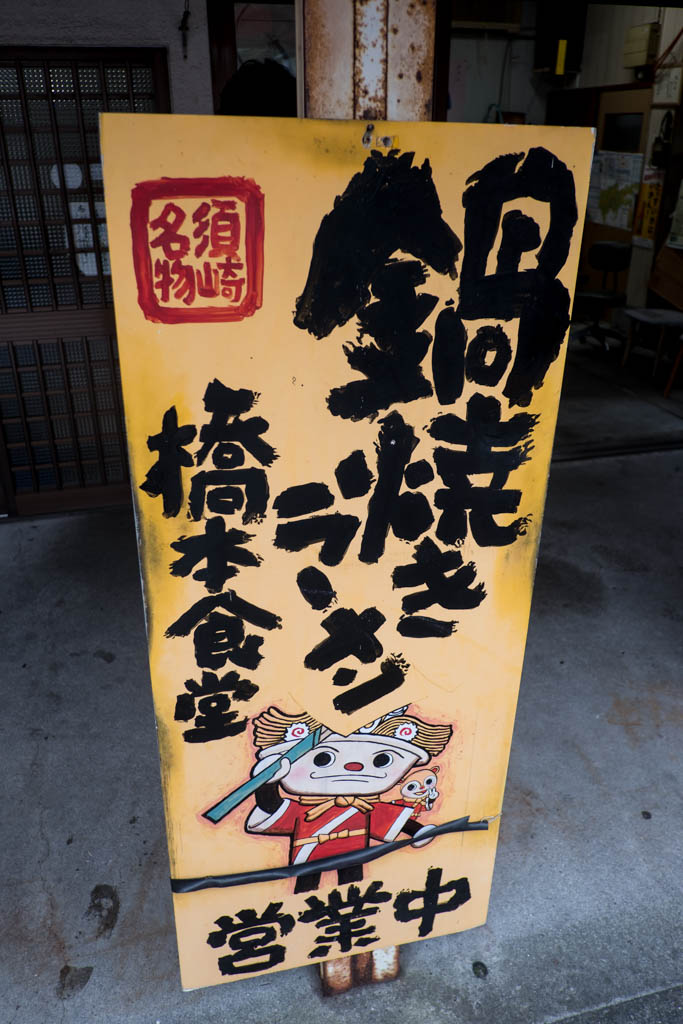 須崎
名物
鍋焼き
ラーメン
橋本食堂
営業中